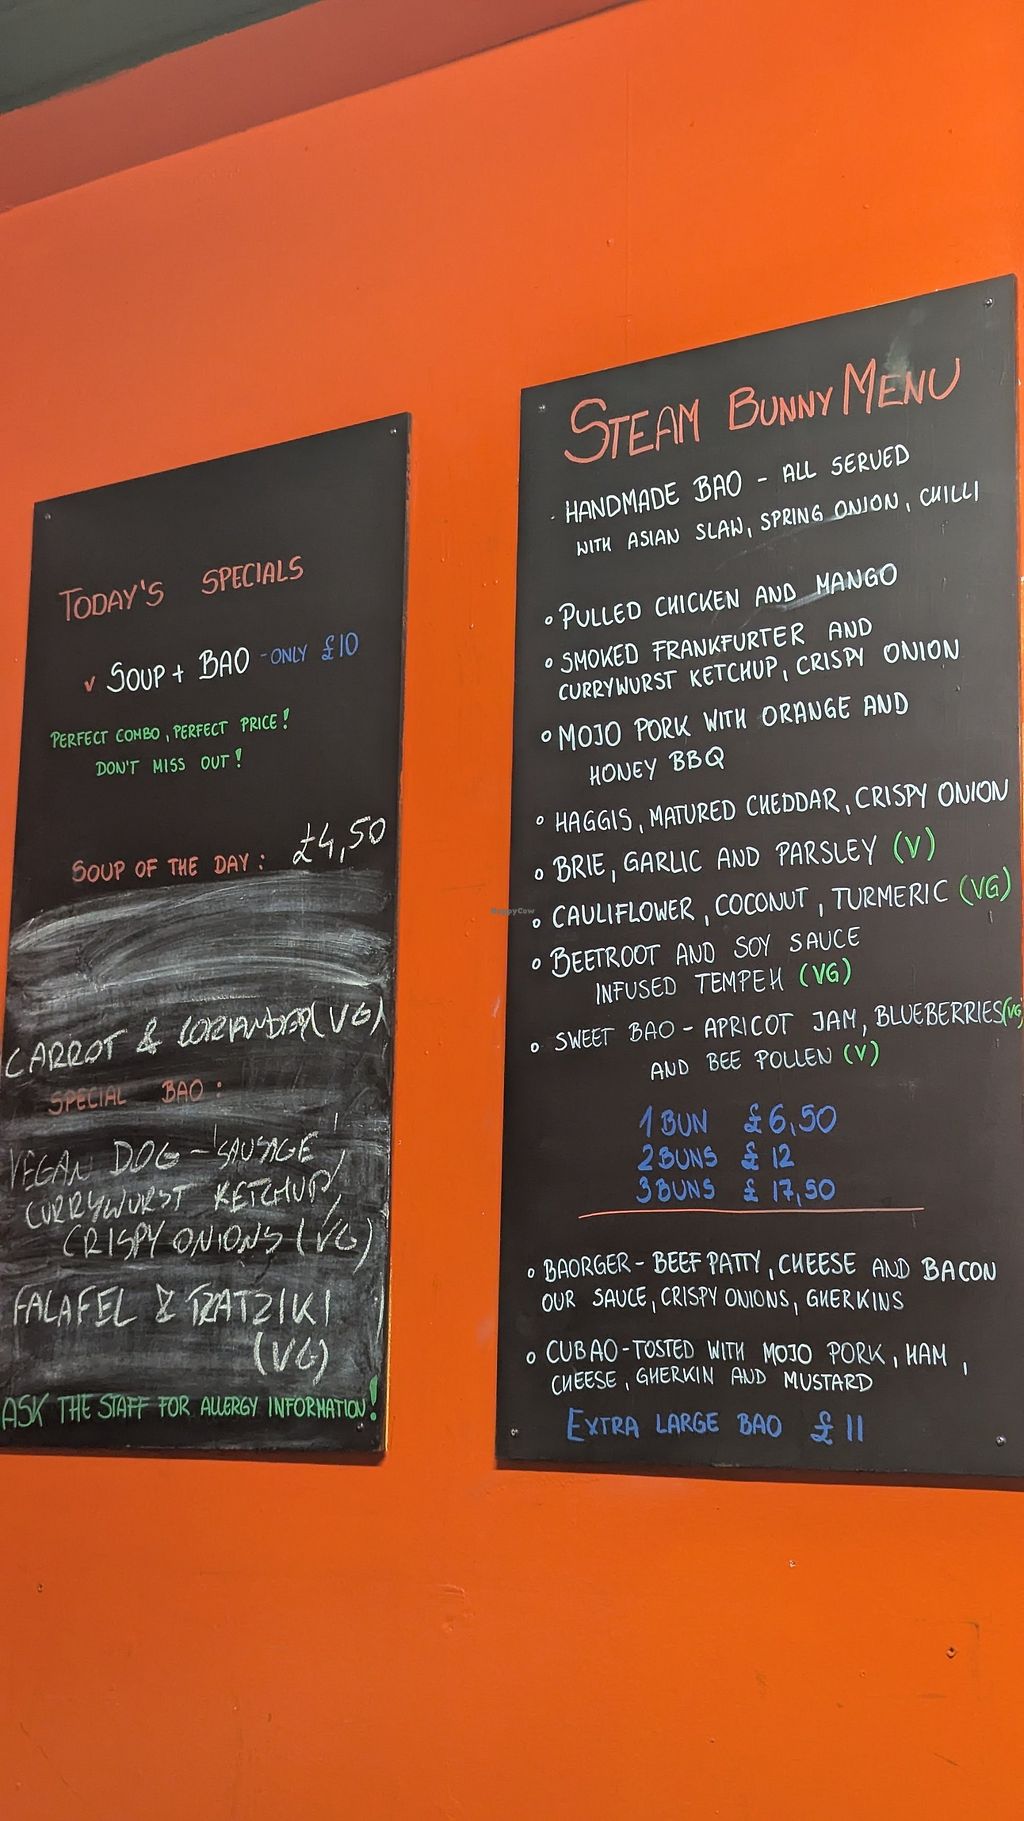 TODAY'S SPECIALS
✓ SOUP + BAO - ONLY £10
PERFECT COMBO, PERFECT PRICE!
DON'T MISS OUT!
SOUP OF THE DAY: £4,50
CARROT & CORIANDER (VG)
SPECIAL BAO:
VEGAN DOG - 'SAUSAGE',
CURRYWURST KETCHUP,
CRISPY ONIONS (VG)
FALAFEL & TZATZIKI
(VG)
ASK THE STAFF FOR ALLERGY INFORMATION!
STEAM BUNNY MENU
HANDMADE BAO - ALL SERVED
WITH ASIAN SLAW, SPRING ONION, CHILLI
PULLED CHICKEN AND MANGO
SMOKED FRANKFURTER AND
CURRYWURST KETCHUP, CRISPY ONION
MOJO PORK WITH ORANGE AND
HONEY BBQ
HAGGIS, MATURED CHEDDAR, CRISPY ONION
BRIE, GARLIC AND PARSLEY (V)
CAULIFLOWER, COCONUT, TURMERIC (VG)
BEETROOT AND SOY SAUCE
INFUSED TEMPEH (VG)
SWEET BAO - APRICOT JAM, BLUEBERRIES (VG)
AND BEE POLLEN (V)
1 BUN £6,50
2 BUNS £12
3 BUNS £17,50
BAORGER - BEEF PATTY, CHEESE AND BACON
OUR SAUCE, CRISPY ONIONS, GHERKINS
CUBAO - TOSTED WITH MOJO PORK, HAM,
CHEESE, GHERKIN AND MUSTARD
EXTRA LARGE BAO £11
HappyCow